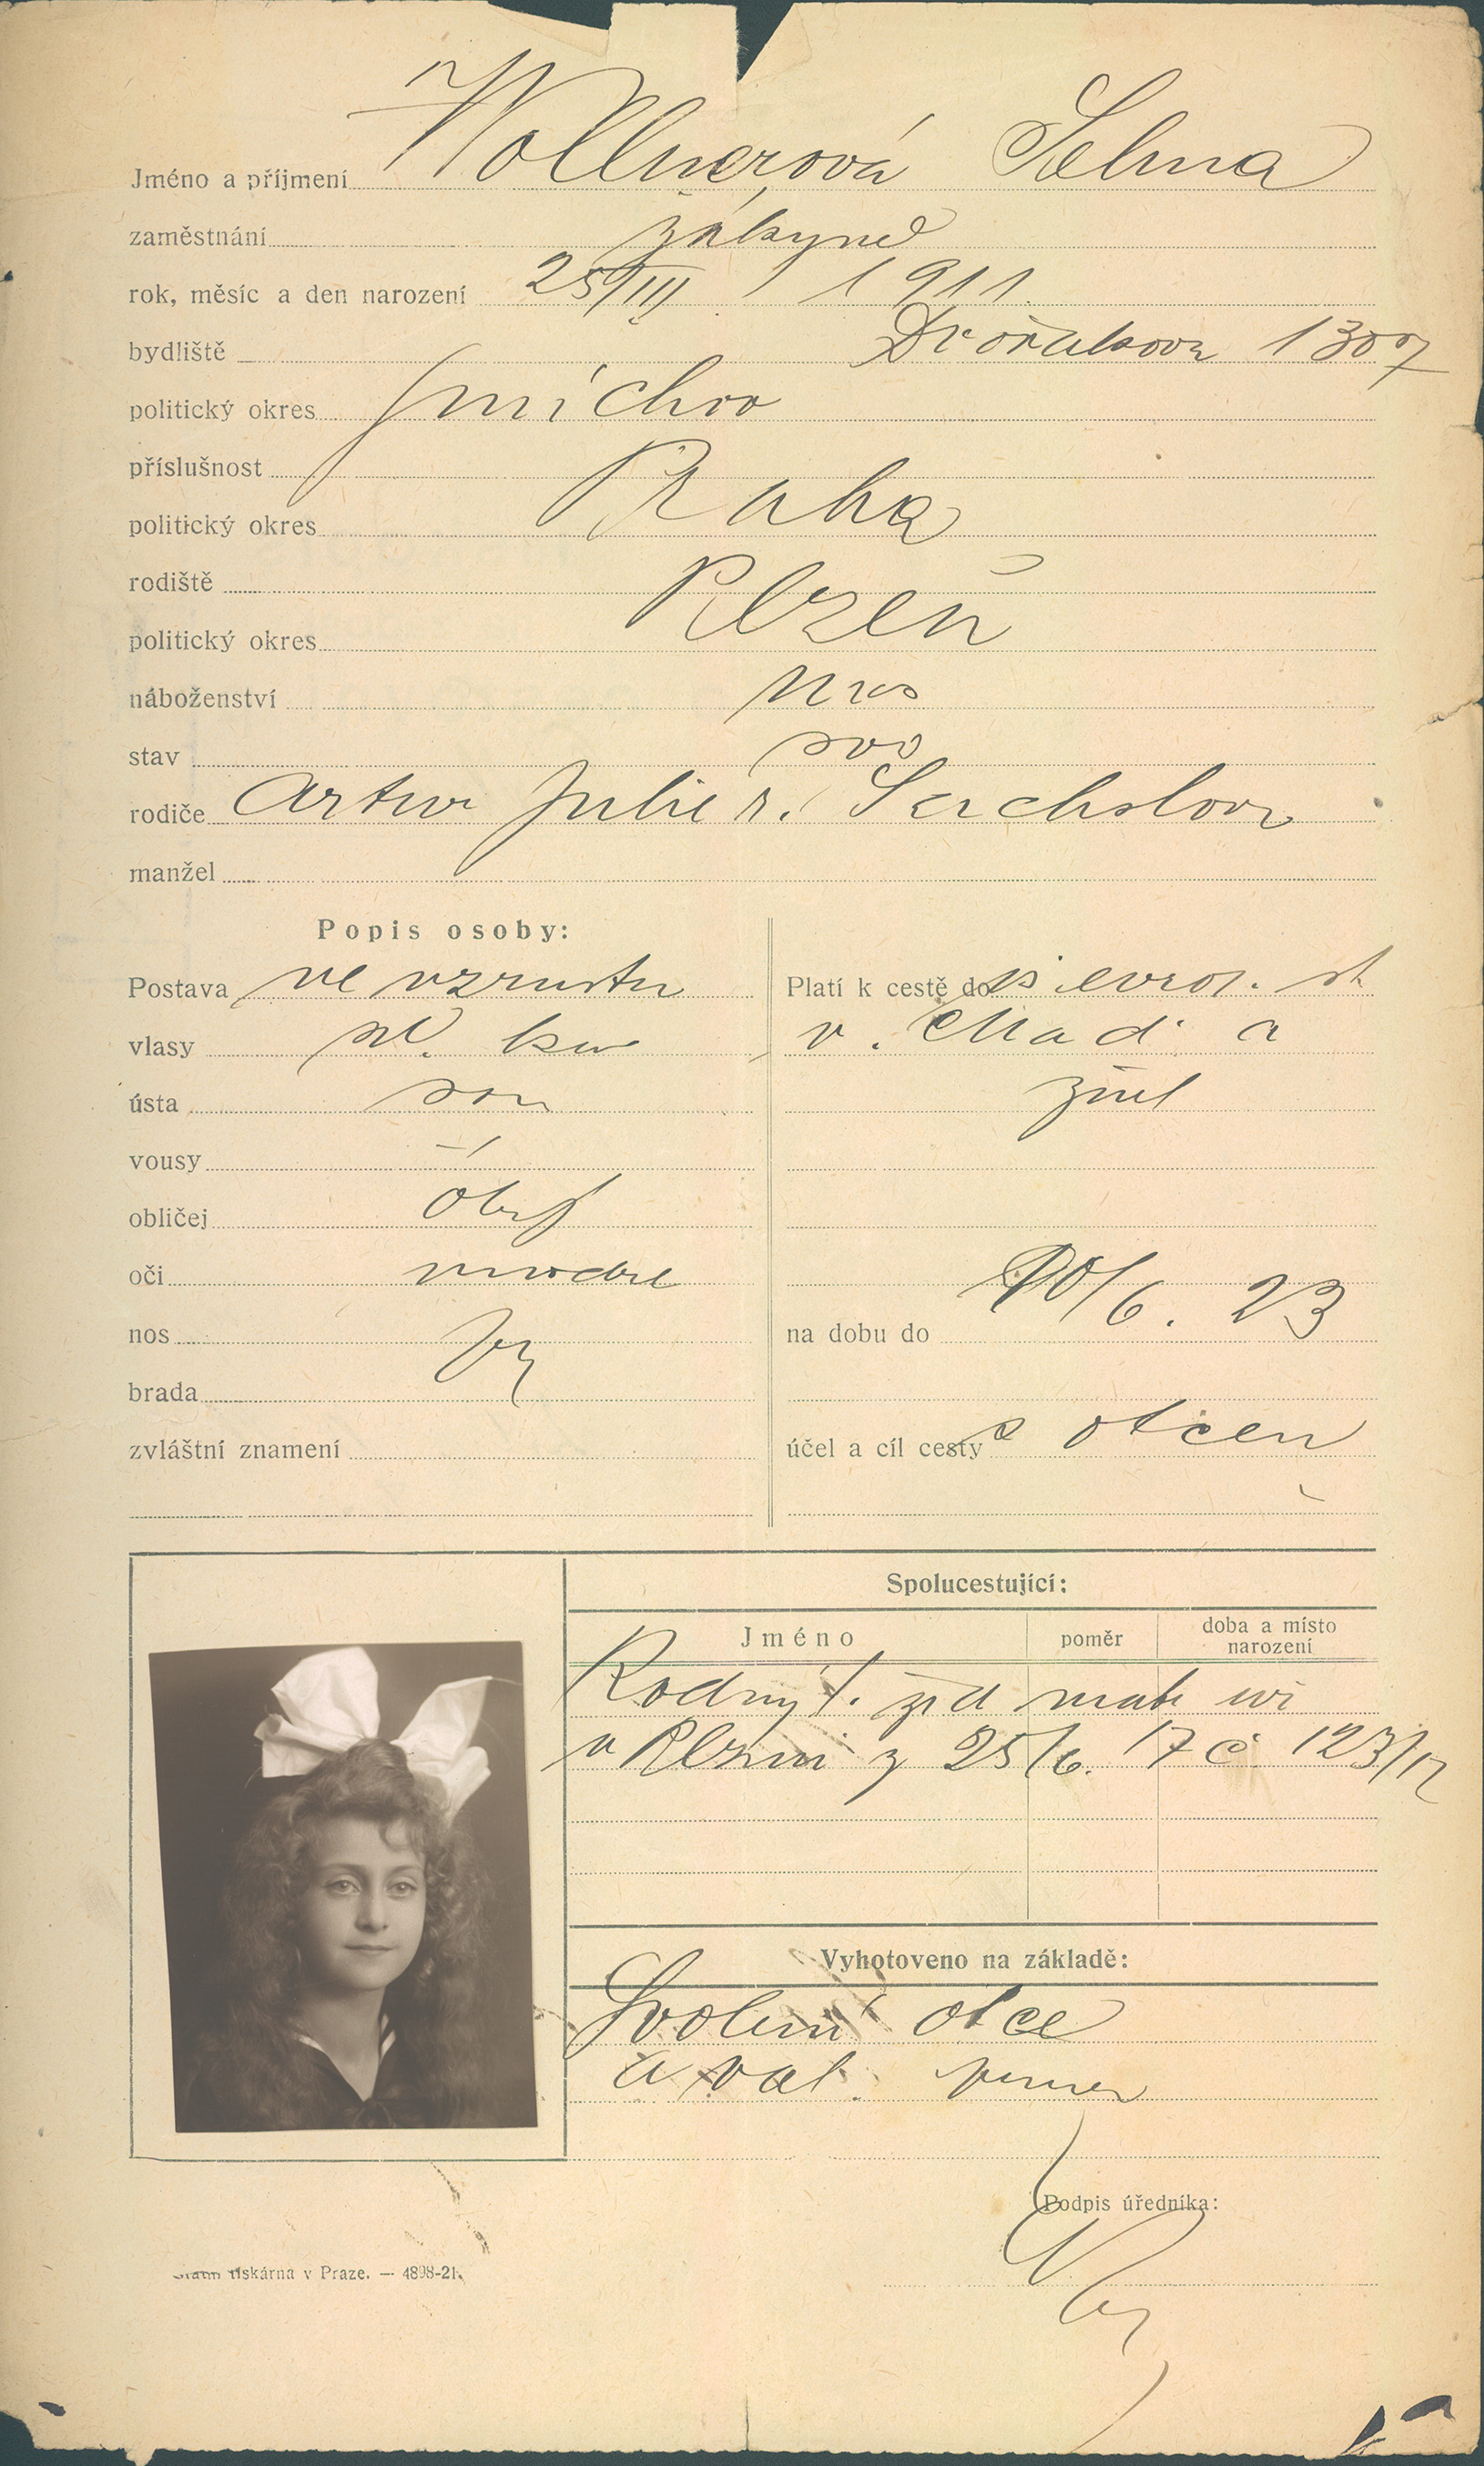 Jméno a příjmení Wollnerová Selma
zaměstnání žákyně
rok, měsíc a den narození 25/III 1911.
bydliště Dvořákova 1307
politický okres Smíchov
příslušnost
politický okres Praha
rodiště
politický okres Plzeň
náboženství
stav svo
rodiče Artur Julie r.
manžel
Popis osoby:
Postava ve vzrustu
vlasy
ústa
vousy —
obličej
oči modré
nos
brada
zvláštní znamení
Platí k cestě do evrop. st
v. Maď a
na dobu do 10/6. 23
účel a cíl cesty s otcem
Spolucestující:
Jméno poměr doba a místo narození
Rodný l. žid
v Plzni z 25/6. 17 č 123/12
Vyhotoveno na základě:
Svolení otce
a
Podpis úředníka:
tiskárna v Praze. — 4898-21.